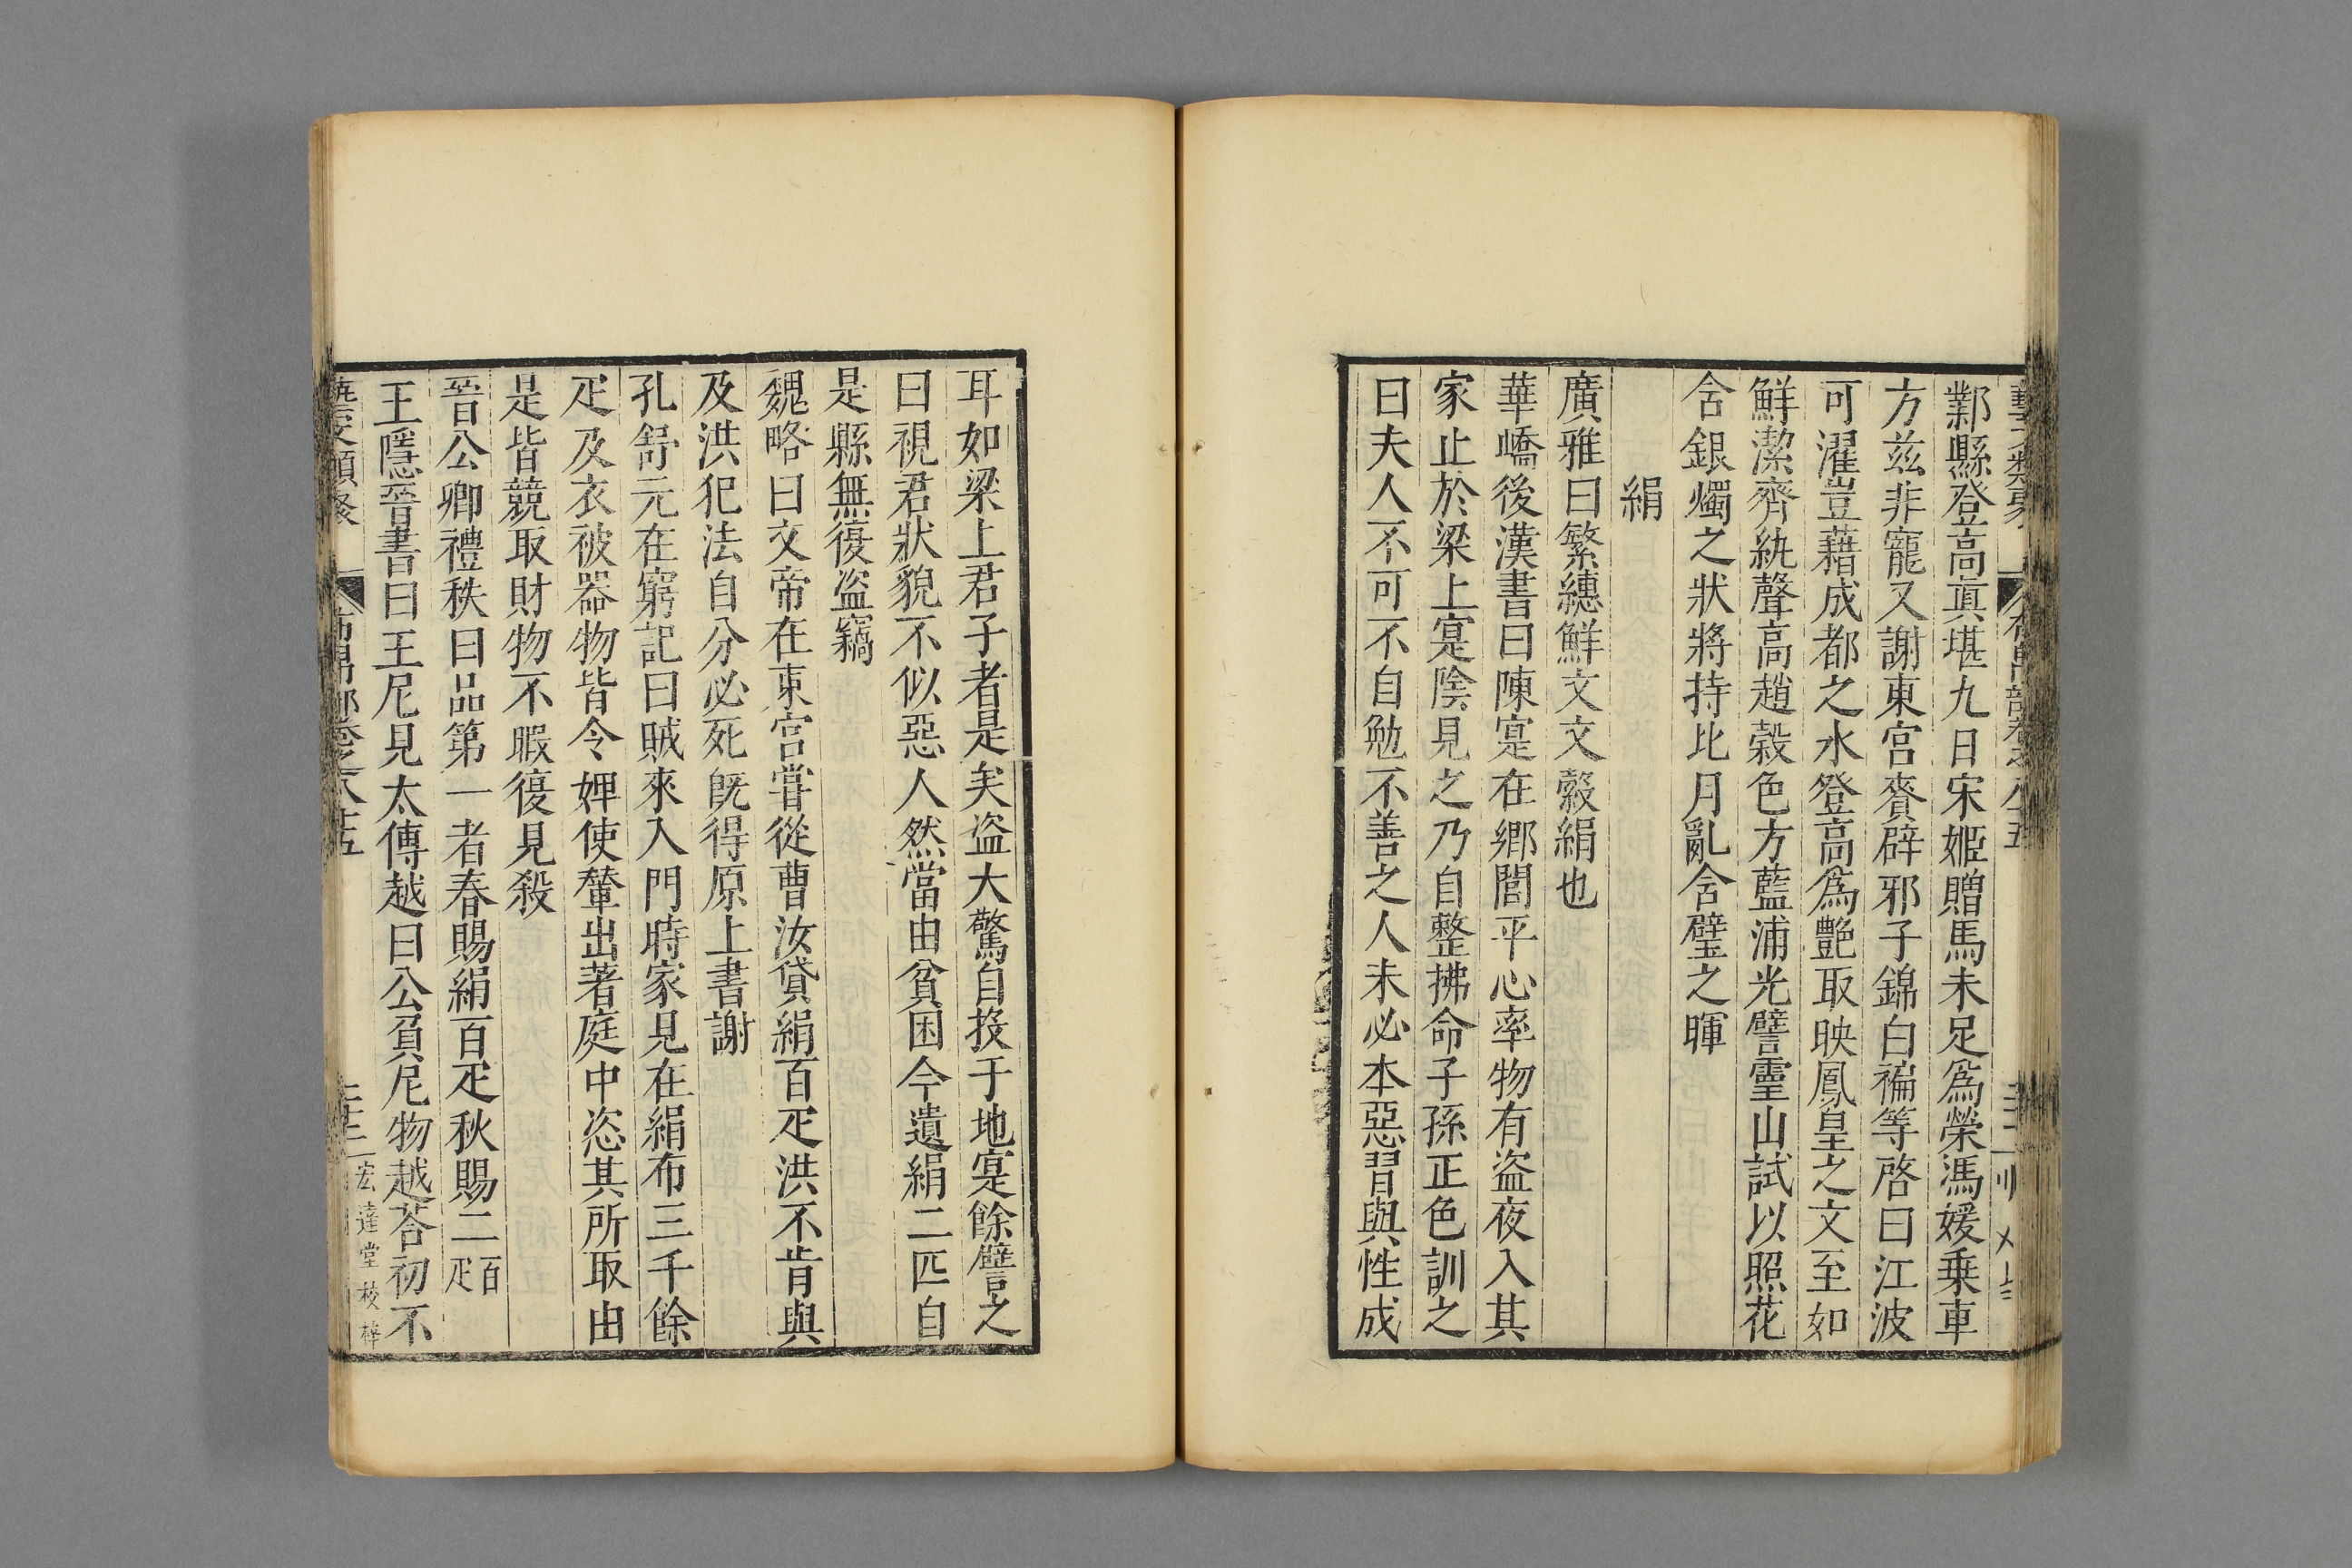 鄴縣登高眞堪九日宋姬贈馬未足爲榮馮媛乗車
方兹非寵又謝東宮賚辟邪子錦白褊等啓曰江波
可濯豈藉成都之水登高爲艷取映鳳皇之文至如
鮮潔齊紈聲高趙縠色方藍浦光譬靈山試以照花
含銀燭之狀將持比月亂含璧之暉
絹
廣雅曰繁總鮮文文縠絹也
華嶠後漢書曰陳寔在鄉閭平心率物有盜夜入其
家止於梁上寔陰見之乃自整拂命子孫正色訓之
曰夫人不可不自勉不善之人未必本惡習與性成
耳如梁上君子者是矣盜大驚自投于地寔餘譬之
曰視君狀貌不似惡人然當由貧困今遺絹二匹自
是縣無復盜竊
魏略曰文帝在東宮嘗從曹汝貸絹百疋洪不肯與
及洪犯法自分必死旣得原上書謝
孔舒元在窮記曰賊來入門時家見在絹布三千餘
疋及衣被器物皆令婢使輦出著庭中恣其所取由
是皆競取財物不暇復見殺
晉公卿禮秩曰品第一者春賜絹百疋秋賜二百疋
王隱晉書曰王尼見太傅越曰公負尼物越荅初不
藝文類聚
布帛部卷之八十五
宏達堂校梓